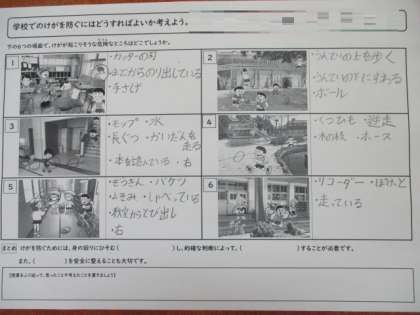 学校でのけがを防ぐにはどうすればよいか考えよう。
下の6つの場面で、けがが起こりそうな危険なところはどこでしょうか。
1
・カッターの刃
・まどからのり出している
・手さげ
2
・うんていの上を歩く
・うんていの下にすわる
・ボール
3
・モップ ・水
・長ぐつ ・かいだんを
走る
・本を読んでいる ・右
4
・くつひも ・逆走
・木の枝 ・ホース
5
・ぞうきん ・バケツ
・よそみ ・しゃべっている
・教室からとび出し
・右
6
・リコーダー
・走っている
まとめ けがを防ぐためには、身の回りにひそむ( )し、的確な判断によって、( )することが必要です。
また、( )を安全に整えることも大切です。